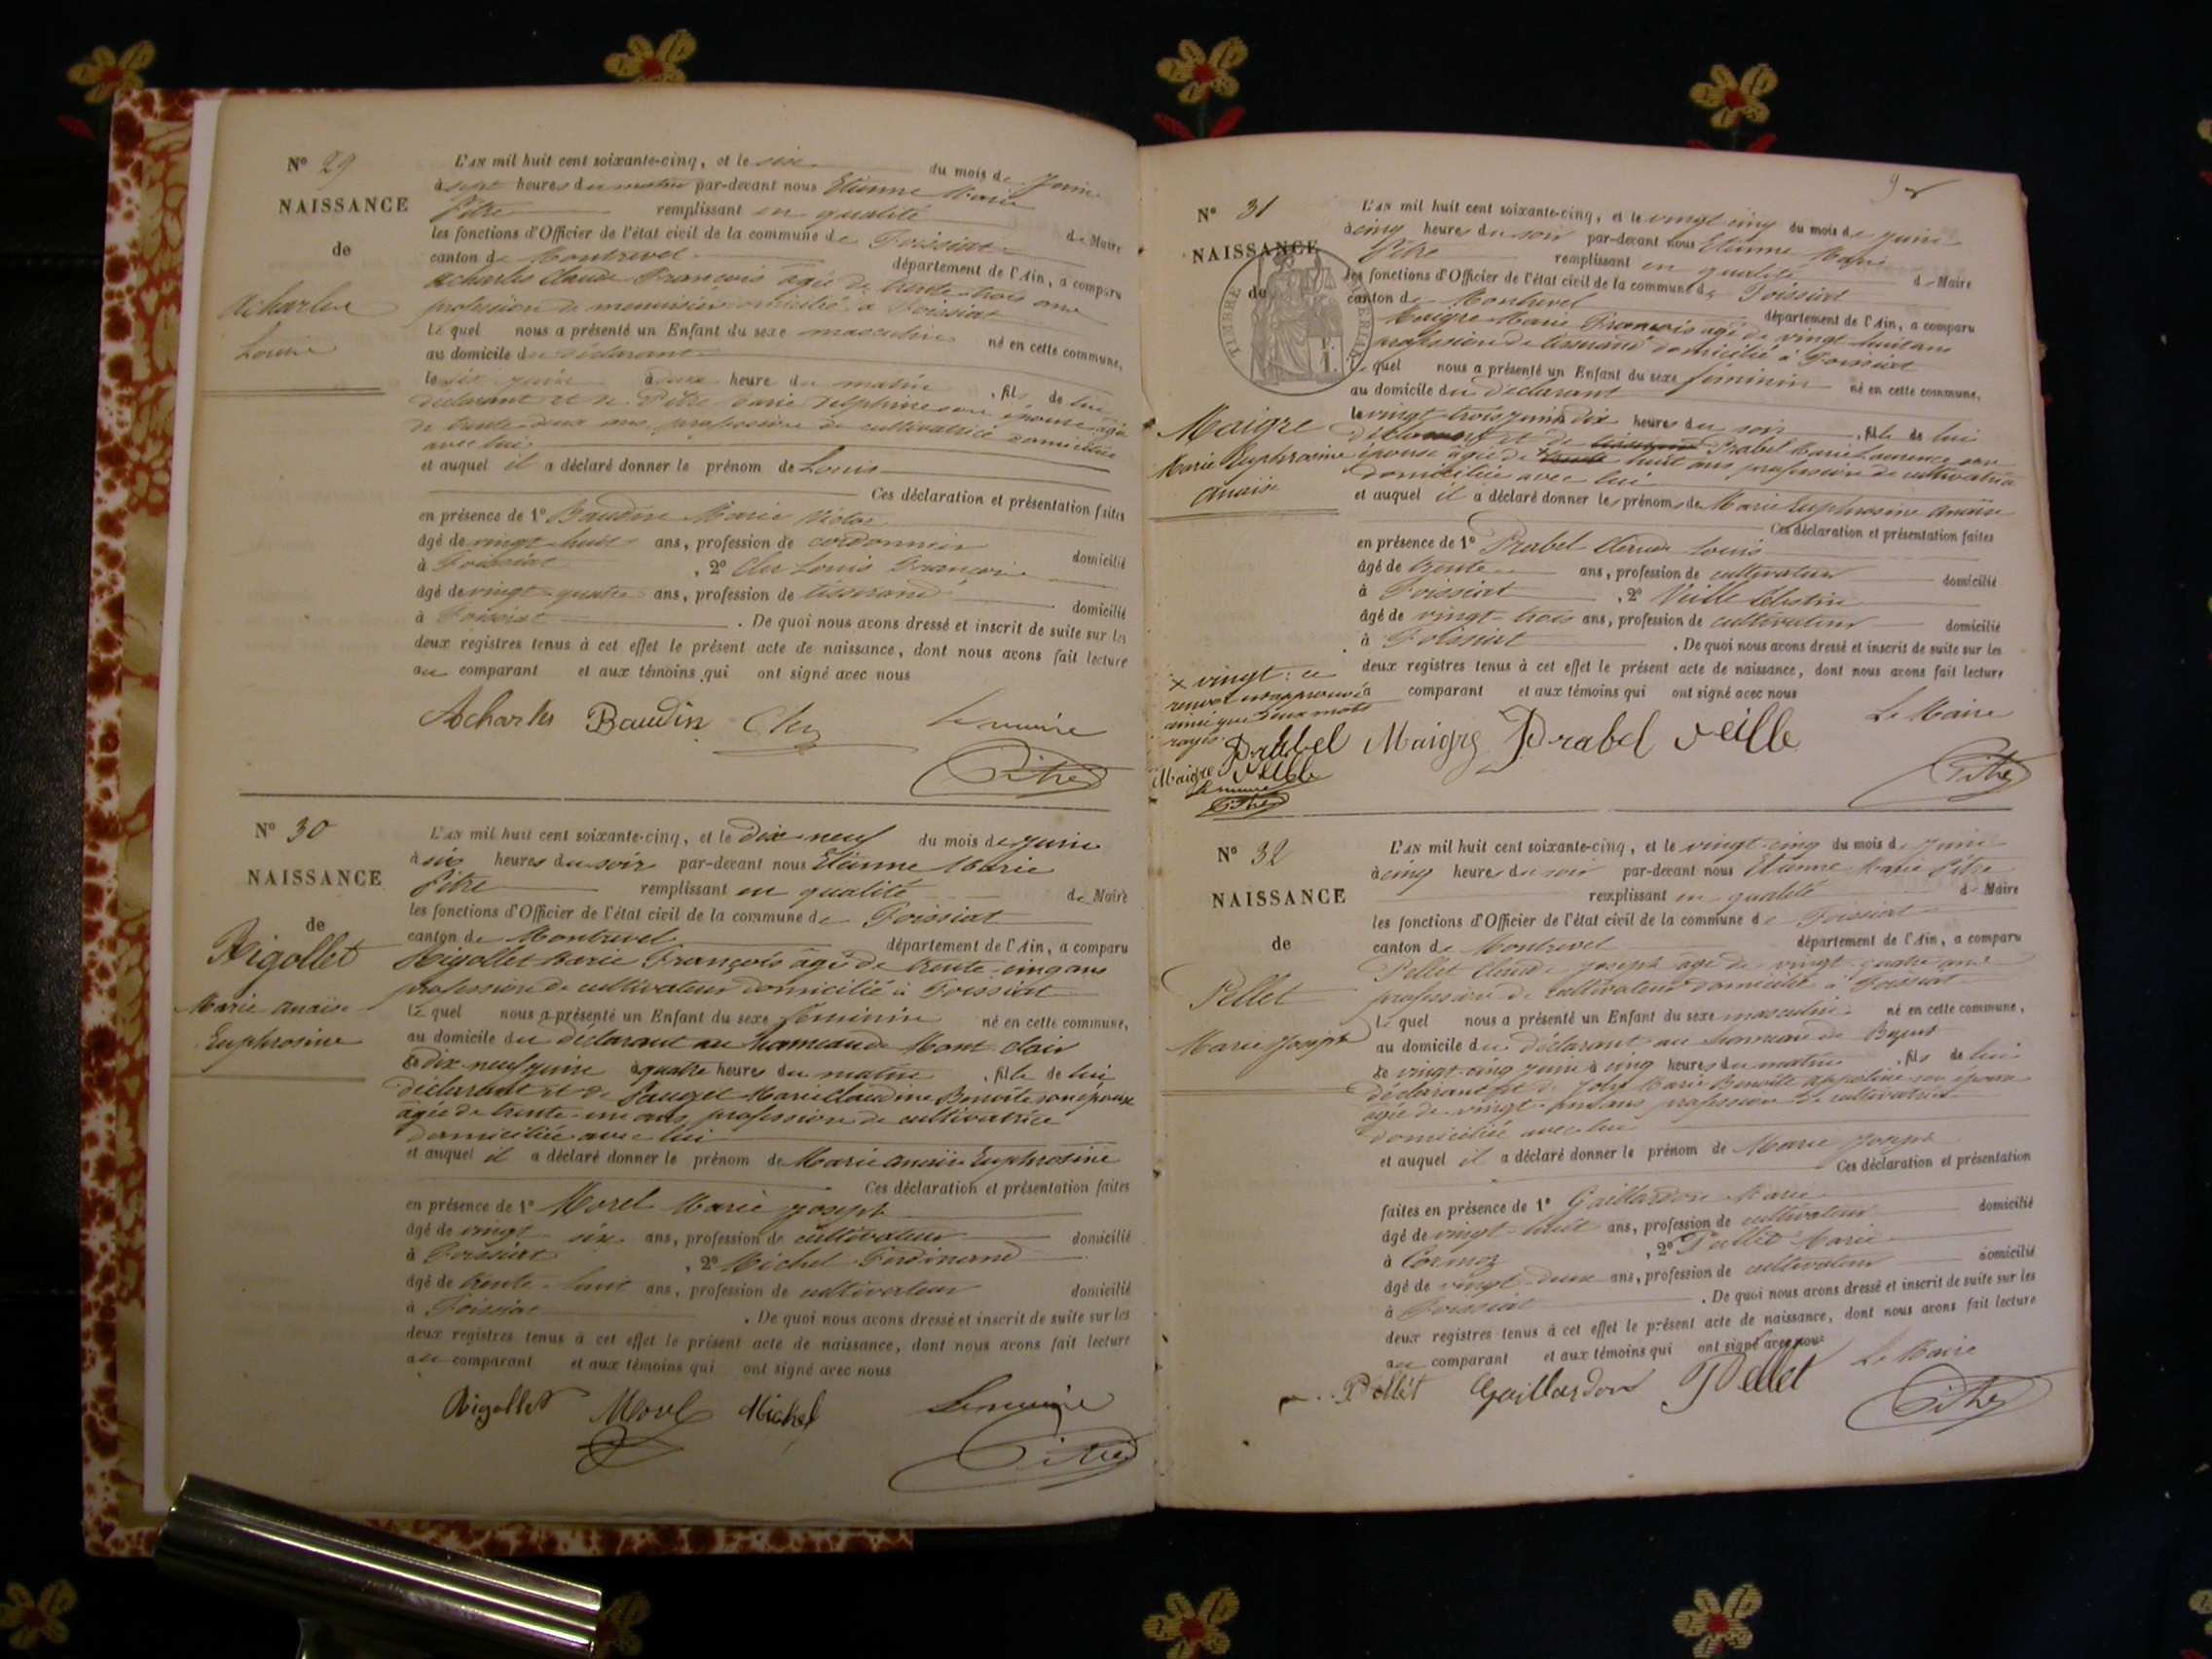 N° 29
NAISSANCE
de
Acharles
Louis
L'AN mil huit cent soixante-cinq, et le six du mois de Juin
à sept heures du matin par-devant nous Etienne Marie
Pitre remplissant en qualité de Maire
les fonctions d'Officier de l'état civil de la commune de Foissiat
canton de Montrevel département de l'Ain, a comparu
Acharles Claude François âgé de trente trois ans
profession de menuisier domicilié à Foissiat
Le quel nous a présenté un Enfant du sexe masculin né en cette commune,
au domicile du déclarant
le six juin à heure du matin , fils de lui
déclarant et de Pitre Marie Delphine son épouse âgée
de trente deux ans, profession de cultivatrice domiciliée
avec lui
et auquel il a déclaré donner le prénom de Louis
Ces déclaration et présentation faites
en présence de 1° Baudin Marie Victor
âgé de vingt huit ans, profession de cordonnier domicilié
à Foissiat , 2° Cler Louis François
âgé de vingt quatre ans, profession de tisserand domicilié
à Foissiat . De quoi nous avons dressé et inscrit de suite sur les
deux registres tenus à cet effet le présent acte de naissance, dont nous avons fait lecture
au comparant et aux témoins qui ont signé avec nous
Acharles Baudin Cler Le maire
Pitre
N° 30
NAISSANCE
de
Rigollet
Marie Anaïse
Euphrosine
L'AN mil huit cent soixante-cinq, et le dix neuf du mois de juin
à six heures du soir par-devant nous Etienne Marie
Pitre remplissant en qualité de Maire
les fonctions d'Officier de l'état civil de la commune de Foissiat
canton de Montrevel département de l'Ain, a comparu
Rigollet Marie François âgé de trente cinq ans
profession de cultivateur domicilié à Foissiat
Le quel nous a présenté un Enfant du sexe féminin né en cette commune,
au domicile du déclarant au hameau de Mont clair
le dix neuf juin à quatre heures du matin , fille de lui
déclarant et de Pauget Marie Claudine Benoite son épouse
âgée de trente un ans, profession de cultivatrice
domiciliée avec lui
et auquel il a déclaré donner le prénom de Marie Anaïse Euphrosine
Ces déclaration et présentation faites
en présence de 1° Morel Marie Joseph
âgé de vingt six ans, profession de cultivateur domicilié
à Foissiat , 2° Michel Ferdinand
âgé de trente huit ans, profession de cultivateur domicilié
à Foissiat . De quoi nous avons dressé et inscrit de suite sur les
deux registres tenus à cet effet le présent acte de naissance, dont nous avons fait lecture
au comparant et aux témoins qui ont signé avec nous
Rigollet Morel Michel Le maire
Pitre
9
N° 31
NAISSANCE
de
TIMBRE IMPERIAL
Maigre
Marie Euphrosine
Anaïse
L'AN mil huit cent soixante-cinq, et le vingt cinq du mois de juin
à cinq heures du soir par-devant nous Etienne Marie
Pitre remplissant en qualité de Maire
les fonctions d'Officier de l'état civil de la commune de Foissiat
canton de Montrevel département de l'Ain, a comparu
Maigre Marie François âgé de vingt huit ans
profession de tisserand domicilié à Foissiat
Le quel nous a présenté un Enfant du sexe féminin né en cette commune,
au domicile du déclarant
le vingt trois juin à dix heures du soir , fille de lui
déclarant et de tisserand Prabel Marie Laurence son
épouse âgée de × trente huit ans profession de cultivatrice
domiciliée avec lui
et auquel il a déclaré donner les prénoms de Marie Euphrosine Anaïse
Ces déclaration et présentation faites
en présence de 1° Prabel Claude Louis
âgé de trente ans, profession de cultivateur domicilié
à Foissiat , 2° Veille Célestin
âgé de vingt trois ans, profession de cultivateur domicilié
à Foissiat . De quoi nous avons dressé et inscrit de suite sur les
deux registres tenus à cet effet le présent acte de naissance, dont nous avons fait lecture
au comparant et aux témoins qui ont signé avec nous
× vingt : ce
renvoi est approuvé
ainsi que deux mots
rayés.
Prabel
Maigre Veille
Le maire
Pitre
Maigre Prabel Veille Le Maire
Pitre
N° 32
NAISSANCE
de
Pellet
Marie Joseph
L'AN mil huit cent soixante-cinq, et le vingt cinq du mois de juin
à cinq heures du soir par-devant nous Etienne Marie Pitre
remplissant en qualité de Maire
les fonctions d'Officier de l'état civil de la commune de Foissiat
canton de Montrevel département de l'Ain, a comparu
Pellet Claude Joseph âgé de vingt quatre ans
profession de cultivateur domicilié à Foissiat
Le quel nous a présenté un Enfant du sexe masculin né en cette commune,
au domicile du déclarant au hameau de
le vingt cinq juin à cinq heures du matin , fils de lui
déclarant et de Marie Benoite Appoline son épouse
âgée de vingt ans profession de cultivatrice
domiciliée avec lui
et auquel il a déclaré donner le prénom de Marie Joseph
Ces déclaration et présentation
faites en présence de 1° Gaillardon Marie
âgé de vingt huit ans, profession de cultivateur domicilié
à Cormoz , 2° Pellet Marie
âgé de vingt deux ans, profession de cultivateur domicilié
à Foissiat . De quoi nous avons dressé et inscrit de suite sur les
deux registres tenus à cet effet le présent acte de naissance, dont nous avons fait lecture
au comparant et aux témoins qui ont signé avec nous
Pellet Gaillardon Pellet Le Maire
Pitre